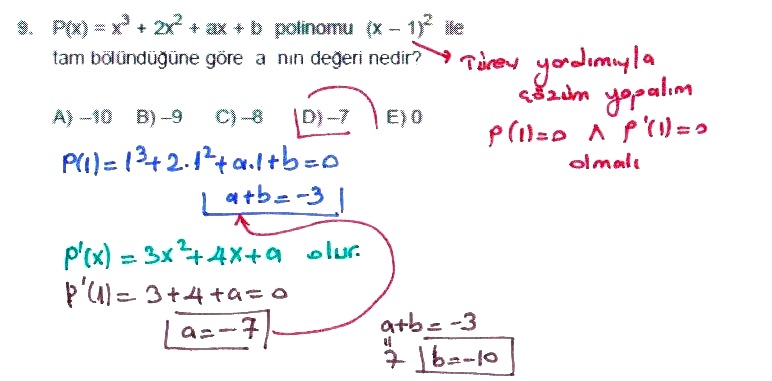 9. P(x) = x³ + 2x² + ax + b polinomu (x − 1)² ile
tam bölündüğüne göre a nın değeri nedir?
Türev yardımıyla
çözüm yapalım
P(1)=0 ∧ P'(1)=0
olmalı
A) −10 B) −9 C) −8 D) −7 E) 0
P(1)=1³+2.1²+a.1+b=0
a+b=-3
P'(x) = 3x²+4x+a olur.
P'(1)= 3+4+a=0
a=-7
a+b=-3
7 b=-10